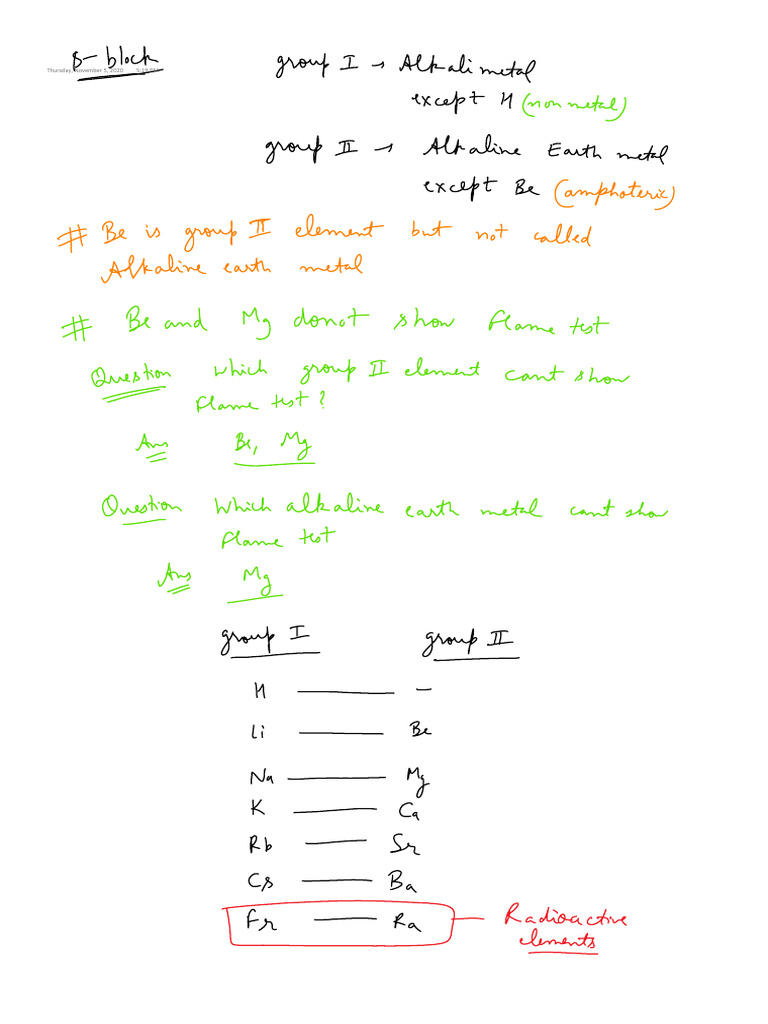 s-block
Thursday, November 5, 2020
group I → Alkali metal
except H (non metal)
group II → Alkaline Earth metal
except Be (amphoteric)
# Be is group II element but not called
Alkaline earth metal
# Be and Mg donot show flame test
Question which group II element cant show
flame test?
Ans Be, Mg
Question Which alkaline earth metal cant show
flame test
Ans Mg
group I group II
H — –
Li — Be
Na — Mg
K — Ca
Rb — Sr
Cs — Ba
Fr — Ra — Radioactive
elements